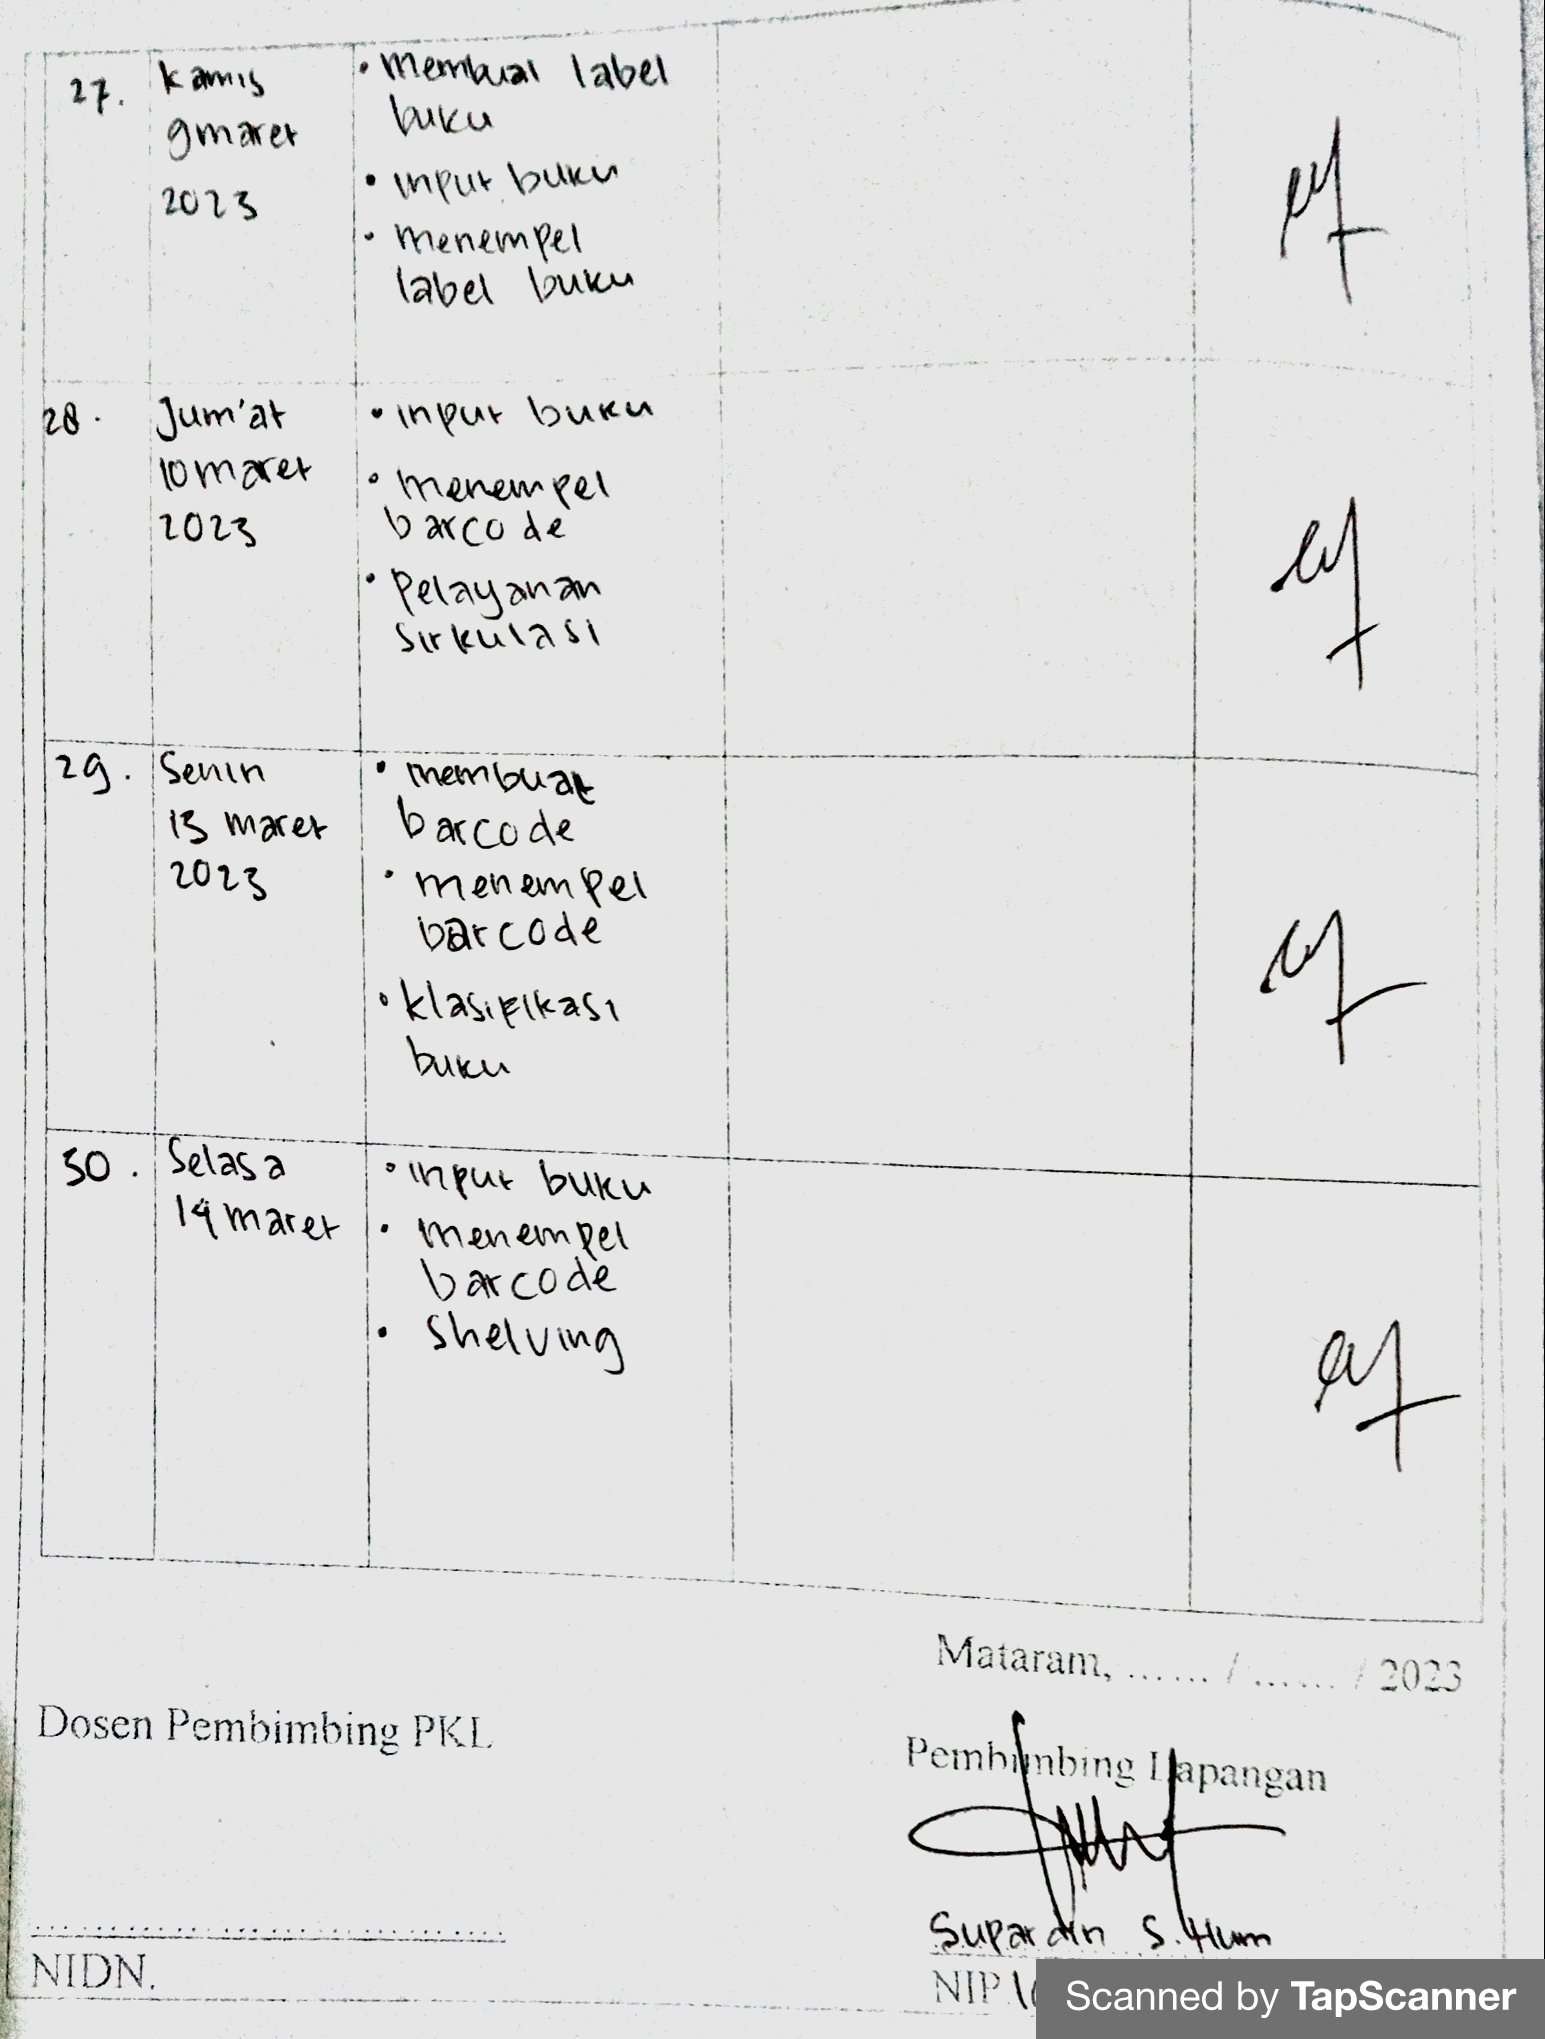 27.
Kamis
9 maret
2023
• Membuat label
buku
• input buku
• menempel
label buku
28.
Jum'at
10 maret
2023
• input buku
• menempel
barcode
• Pelayanan
sirkulasi
29.
Senin
13 maret
2023
• membuat
barcode
• menempel
barcode
• klasifikasi
buku
30.
Selasa
14 maret
• input buku
• menempel
barcode
• Shelving
Mataram, ...... / ...... / 2023
Dosen Pembimbing PKL
Pembimbing Lapangan
Supardin S.Hum
NIDN.
NIP
Scanned by TapScanner